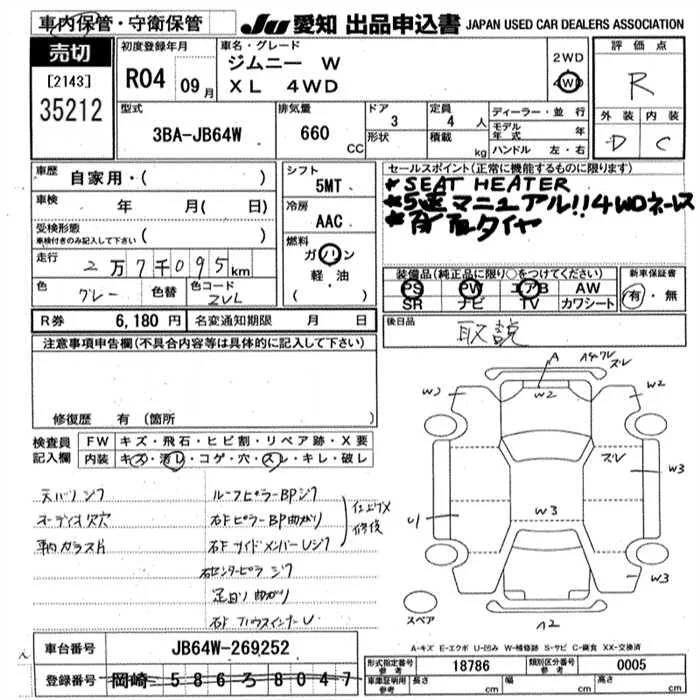 車内保管・守衛保管
JU 愛知 出品申込書 JAPAN USED CAR DEALERS ASSOCIATION
売切
[2143]
35212
初度登録年月
R04 09月
車名・グレード
ジムニー W
XL 4WD
2WD
4WD
評価点
R
外装 内装
D C
型式
3BA-JB64W
排気量
660 CC
ドア
3
形状
定員
4 人
積載 kg
ディーラー・並行
モデル年式 年
ハンドル 左・右
車歴
自家用・( )
車検
年 月( 日)
受検形態
車検付きのみ記入して下さい ( )
走行
2万7千095km
色
グレー
色替
色コード
ZVL
シフト
5MT
冷房
AAC
燃料
ガソリン
軽・油
( )
セールスポイント(正常に機能するものに限ります)
*SEAT HEATER
*5速マニュアル!!4WDネーレス
タイヤ
装備品(純正品に限り○をつけてください)
PS PW エアB AW
SR ナビ TV カワシート
新車保証書
有・無
R券 6,180円 名変通知期限 月 日
後日品
取説
注意事項申告欄(不具合内容等は具体的に記入して下さい)
修復歴 有 (箇所
検査員記入欄
FW キズ・飛石・ヒビ割・リペア跡・X要
内装 キズ・汚れ・コゲ・穴・スレ・キレ・破レ
天バリシワ
オーディオ欠穴
車内ガラス片
ルーフピラーBPシワ
右FピラーBP曲がり
右FサイドメンバーUシワ
右センターピラシワ
足回り曲がり
右FハウスインナーU
仕上げ×
修復
A
ズレ
W2
W2
W2
ズレ
W3
W3
U1
W3
A2
スペア
A-キズ E-エクボ U-凹み W-補修跡 S-サビ C-腐食 XX-交換済
車台番号 JB64W-269252
登録番号 岡崎 586ろ8047
型式指定番号 参考 18786
類別区分番号 参考 0005
車庫証明用 参考
長さ cm
幅 cm
高さ cm